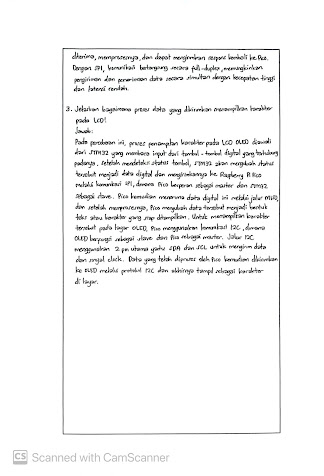 diterima, memprosesnya, dan dapat mengirimkan respons kembali ke Pico.
Dengan SPI, komunikasi berlangsung secara full-duplex, memungkinkan
pengiriman dan penerimaan data secara simultan dengan kecepatan tinggi
dan latensi rendah.
3. Jelaskan bagaimana proses data yang dikirimkan menampilkan karakter
pada LCD!
Jawab:
Pada percobaan ini, proses penampilan karakter pada LCD OLED diawali
dari STM32 yang membaca input dari tombol-tombol digital yang terhubung
padanya, setelah mendeteksi status tombol, STM32 akan mengubah status
tersebut menjadi data digital dan mengirimkannya ke Raspberry Pi Pico
melalui komunikasi SPI, dimana Pico berperan sebagai master dan STM32
sebagai slave. Pico kemudian menerima data digital ini melalui jalur MISO,
dan setelah memprosesnya, Pico mengubah data tersebut menjadi bentuk
teks atau karakter yang siap ditampilkan. Untuk menampilkan karakter
tersebut pada layar OLED, Pico menggunakan komunikasi I2C, dimana
OLED berfungsi sebagai slave dan Pico sebagai master. Jalur I2C
menggunakan 2 pin utama yaitu SDA dan SCL untuk mengirim data
dan sinyal clock. Data yang telah diproses oleh Pico kemudian dikirimkan
ke OLED melalui protokol I2C dan akhirnya tampil sebagai karakter
di layar.
CS Scanned with CamScanner